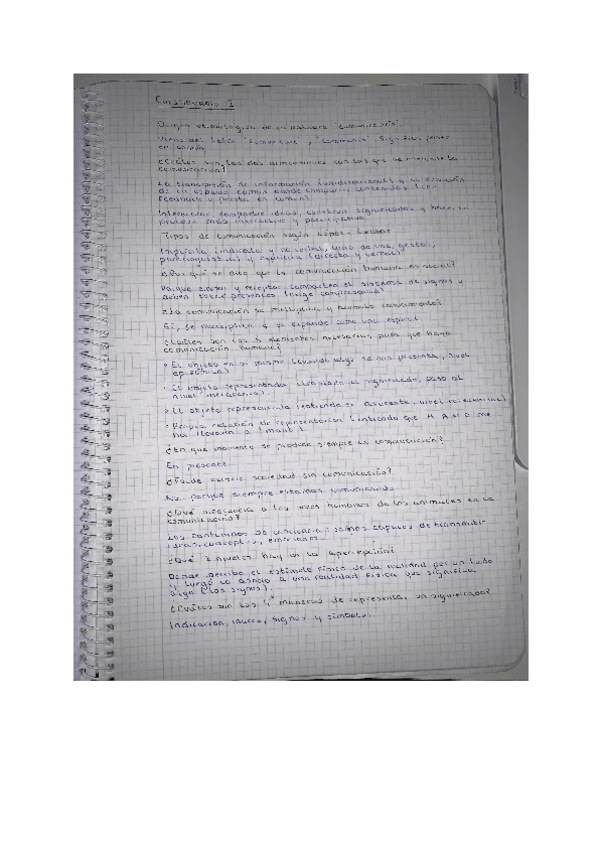 Cuestionario 1
Origen etimológico de la palabra "comunicación".
Viene del latín "comunicare", "communis" significa poner
en común
¿Cuáles son las dos dimensiones con las que se entiende la
comunicación?
La transmisión de información (unidireccional) y la creación
de un espacio común donde compartir contenidos (con
feedback y puesta en común)
Intercambiar, compartir ideas, construir significados y hace
proceso más interactivo y participativo.
Tipos de comunicación según López-
Implícita (indicata y no verbal, todo de las gestos,
paralingüísticas) y explícita (directa y verbal)
¿Por qué se dice que la comunicación humana es social?
Porque emisor y receptor comparten el sistema de signos y
deben estar presentes (exige compresencia)
¿La comunicación se multiplica y aumenta constantemente?
Sí, se multiplica y se expande como una espiral
¿Cuáles son los elementos necesarios para que haya
comunicación humana?
• El objeto en sí mismo (cuando algo se nos presenta, nivel
• El objeto representado (elaborado el significado, paso al
nivel
• El objeto representante
• relación de representación (entiendo que M A N O me
ha llevado a (mano)).
¿En qué momento se produce siempre la comunicación?
En presente
¿Puede existir sociedad sin comunicación?
No, porque siempre estamos comunicando
¿Qué diferencia a los seres humanos de los animales en la
comunicación?
Los contenidos de conciencia: somos capaces de transmitir
ideas, conceptos, emociones...
¿Qué 2 niveles hay en la apercepción?
Donde percibo el estímulo físico de la realidad por un lado
y luego lo asocio a una realidad física que significa
algo (los signos)
¿Cuáles son las 4 maneras de representar un significado?
Indicación, signos y símbolos.